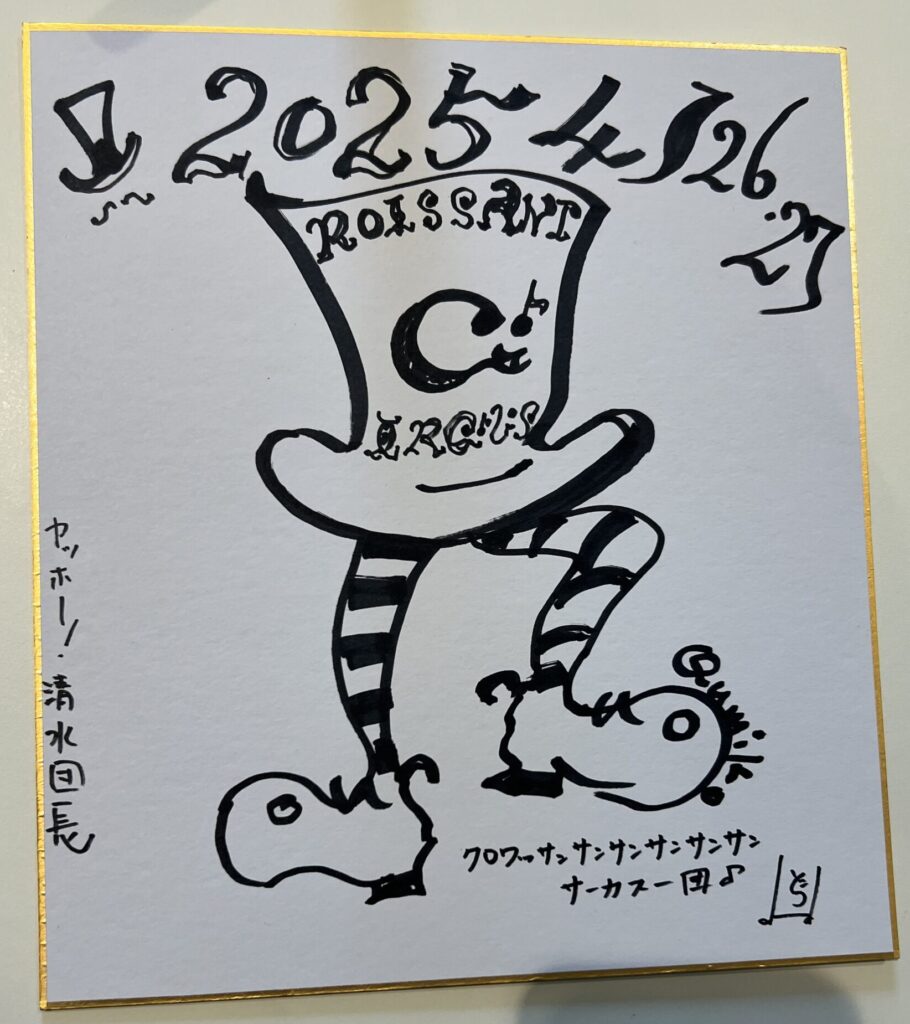 2025 4/26.27
ROISSANT
C
IRCUS
ヤッホー!清水団長
クロワッサンサンサンサンサンサン
サーカス一団♪